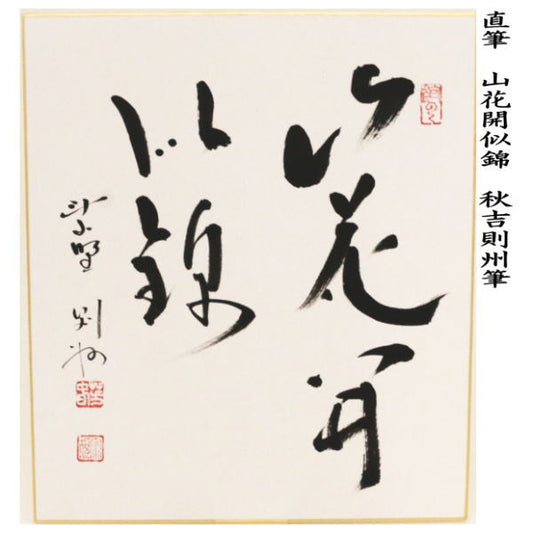 直筆 山花開似錦 秋吉則州筆
山花開
似錦
紫野 則州